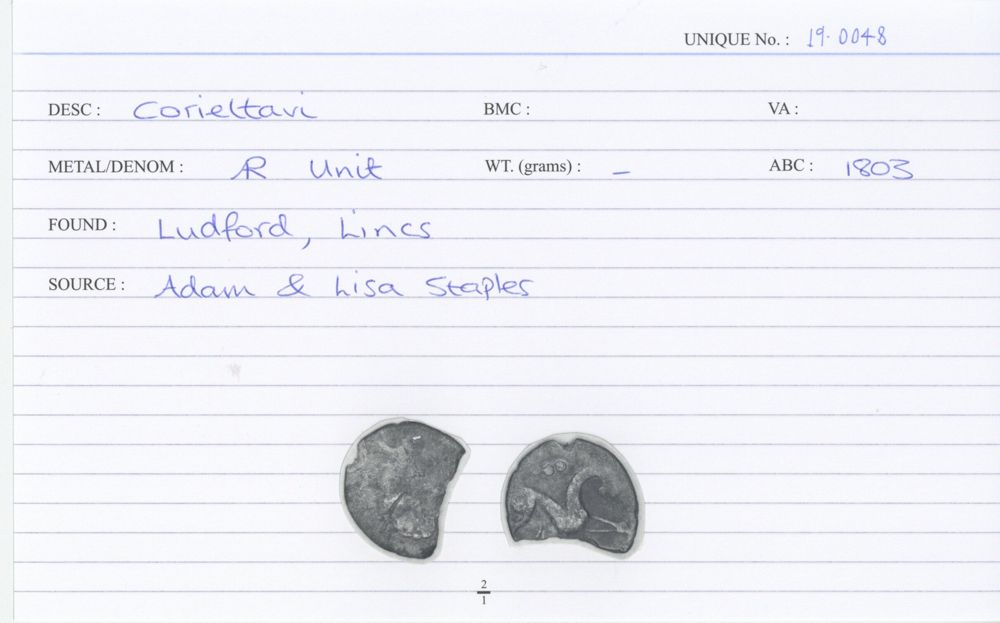 UNIQUE No. : 19.0048
DESC : Corieltavi BMC : VA :
METAL/DENOM : AR Unit WT. (grams) : – ABC : 1803
FOUND : Ludford, Lincs
SOURCE : Adam & Lisa Staples
2
1